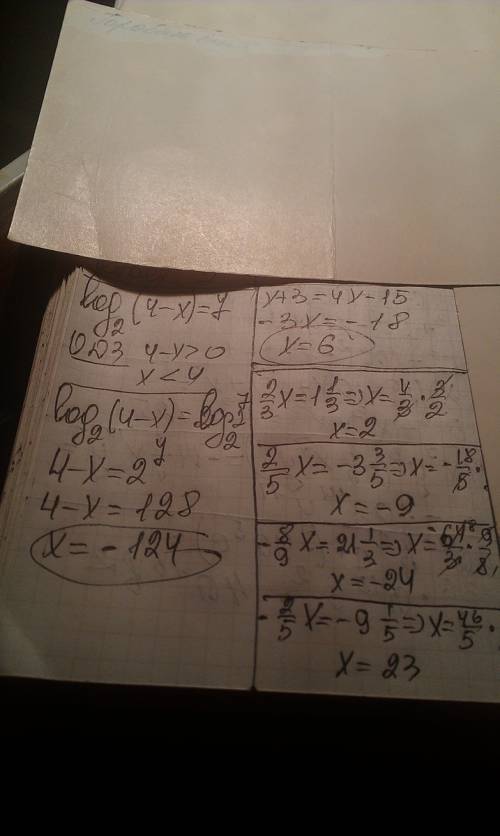 log₂(4-x)=7
ОДЗ 4-x>0
x<4
log₂(4-x)=log₂2⁷
4-x=2⁷
4-x=128
x=-124
x+3=4x-15
-3x=-18
x=6
2/3 x=1 1/3=>x=4/3·3/2
x=2
2/5 x=-3 3/5=>x=-18/5·
x=-9
-8/9 x=21 1/3=>x=64/3·9/8
x=-24
-2/5 x=-9 1/5=>x=46/5·
x=23